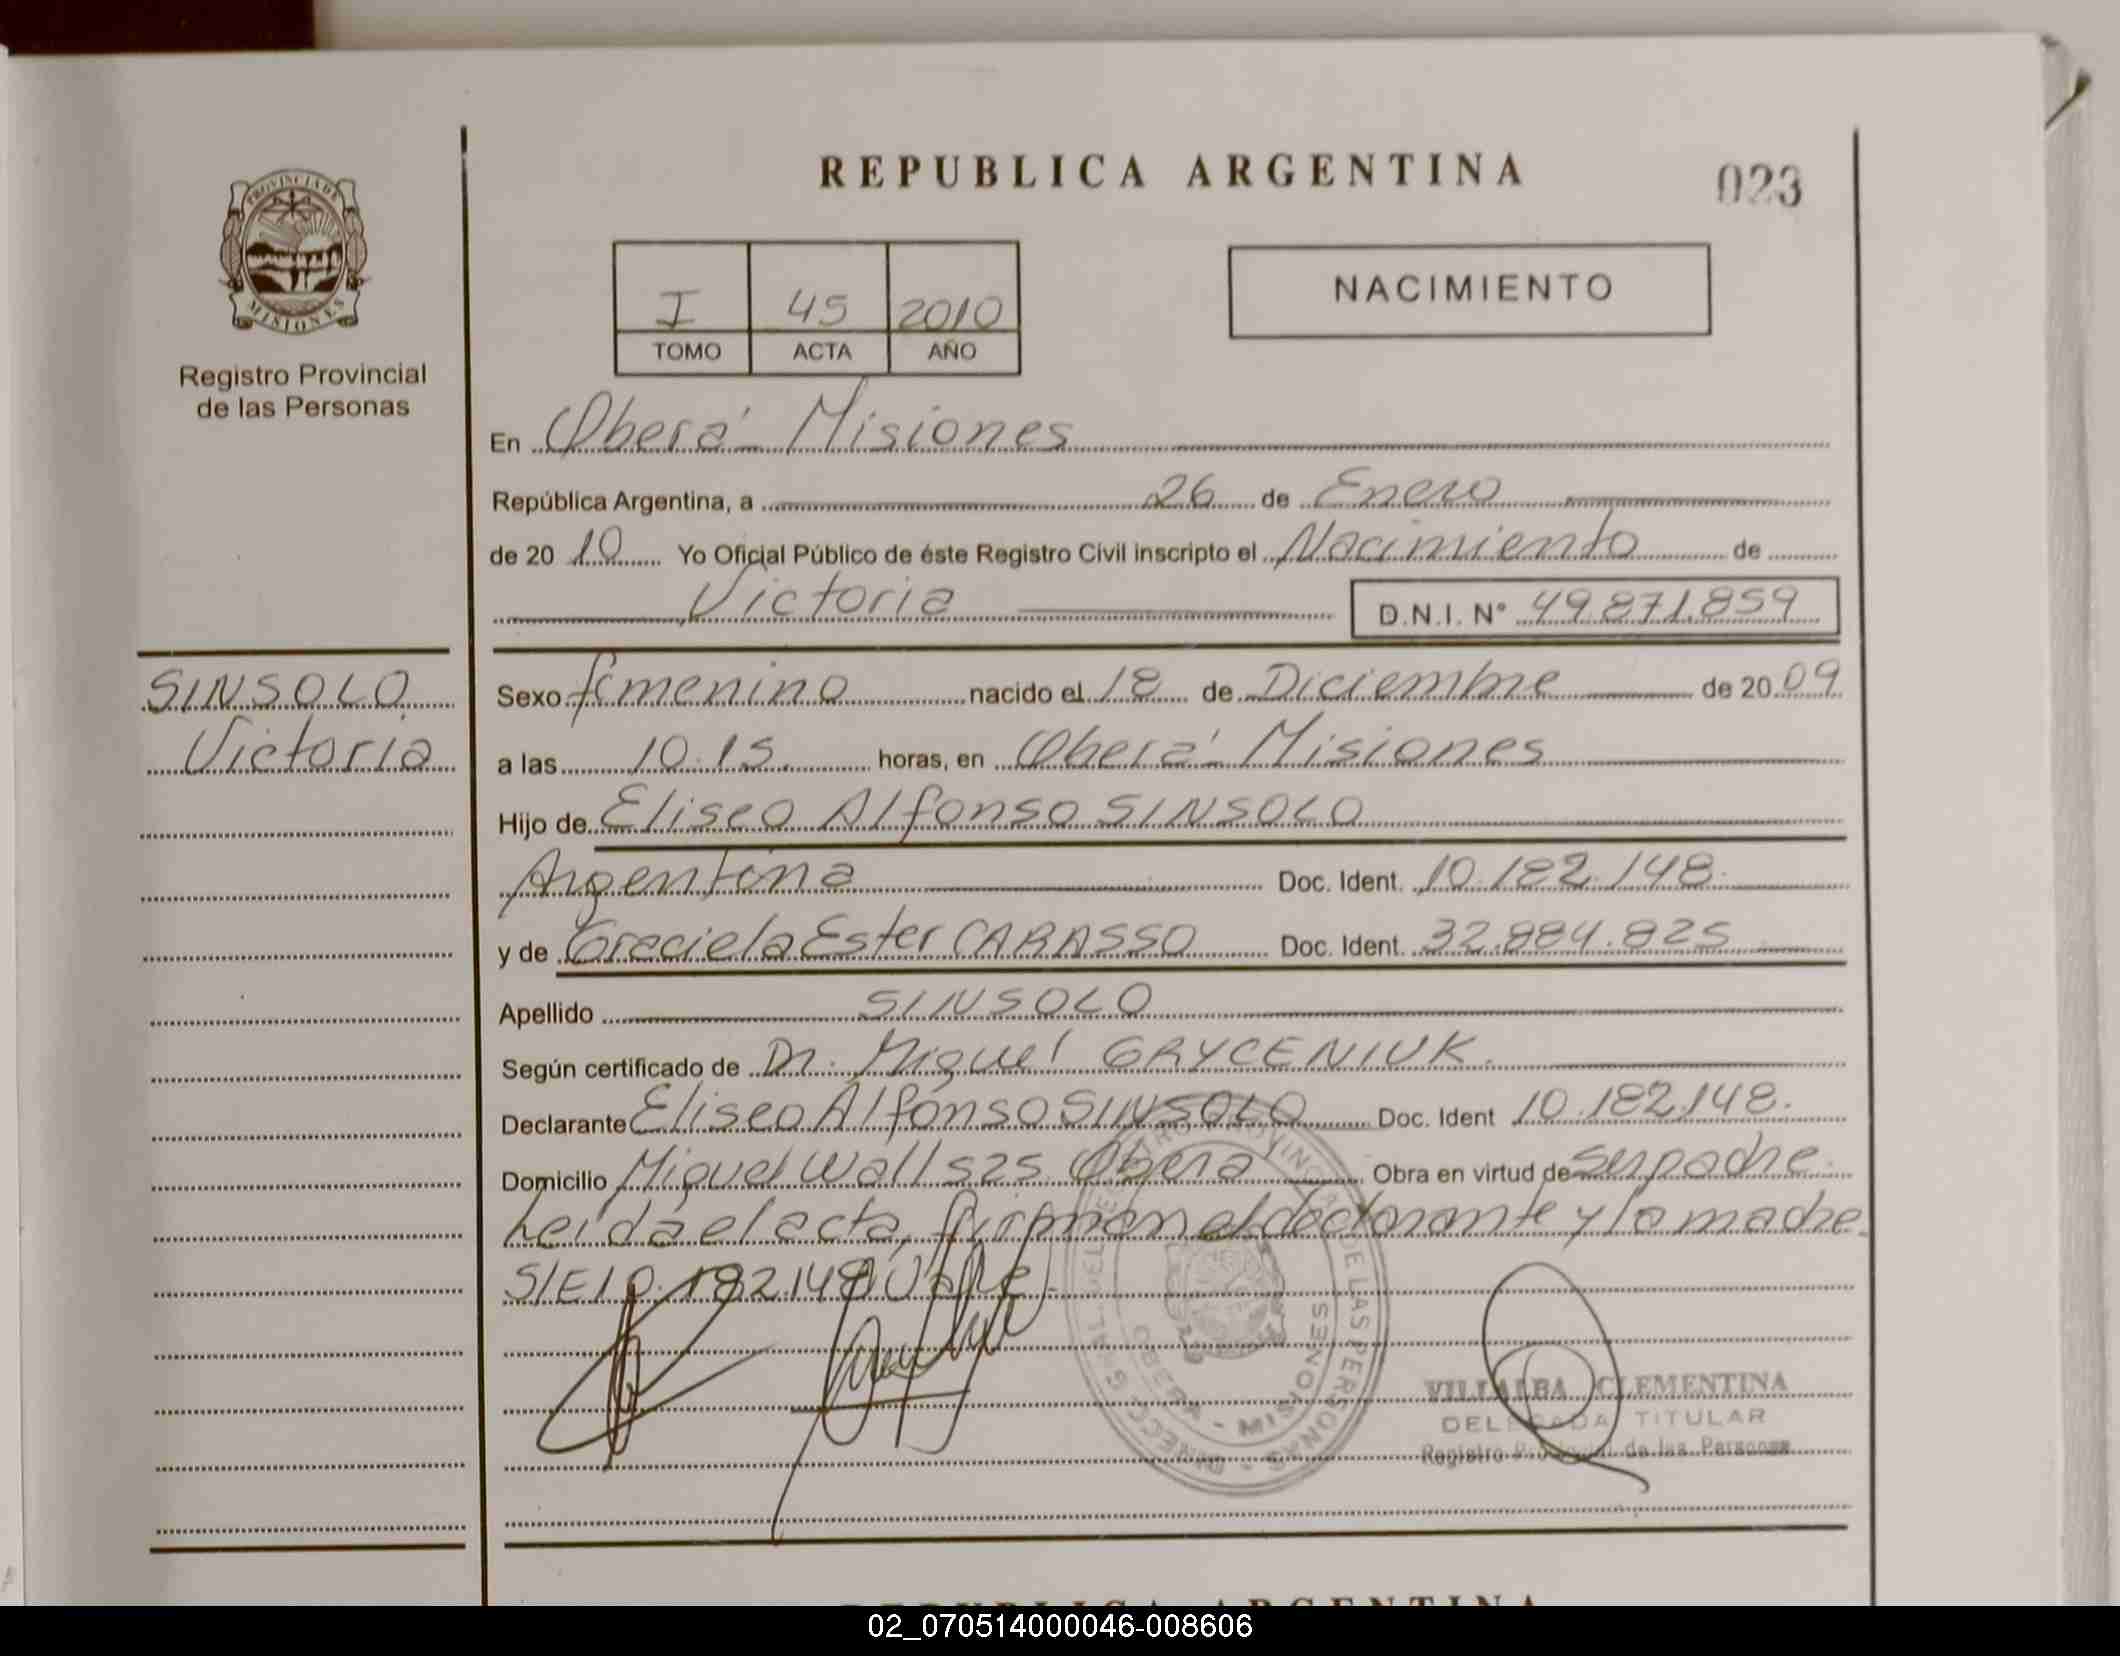 REPUBLICA ARGENTINA
023
PROVINCIA DE
MISIONES
Registro Provincial
de las Personas
I 45 2010
TOMO ACTA AÑO
NACIMIENTO
En Oberá - Misiones
República Argentina, a 26 de Enero
de 20 10 Yo Oficial Público de éste Registro Civil inscripto el Nacimiento de
Victoria D.N.I. N° 49.871.859
SINSOLO
Victoria
Sexo femenino nacido el 18 de Diciembre de 20 09
a las 10.15. horas, en Oberá - Misiones
Hijo de Eliseo Alfonso SINSOLO
Argentina Doc. Ident. 10.182.148.
y de Graciela Ester CARASSO Doc. Ident. 32.884.825
Apellido SINSOLO
Según certificado de Dr. Miguel GRYCENIUK.
Declarante Eliseo Alfonso SINSOLO Doc. Ident 10.182.148.
Domicilio Miguel Wall 525. Obera Obra en virtud de ser padre.
Leída el acta, firman el declarante y la madre.
S/E 10.182.148 Vale.
DIRECC. GRAL. DEL REGISTRO PROVINCIAL DE LAS PERSONAS
OBERA - MISIONES
VILLALBA CLEMENTINA
DELEGADA TITULAR
Registro Provincial de las Personas
REPUBLICA ARGENTINA
02_070514000046-008606